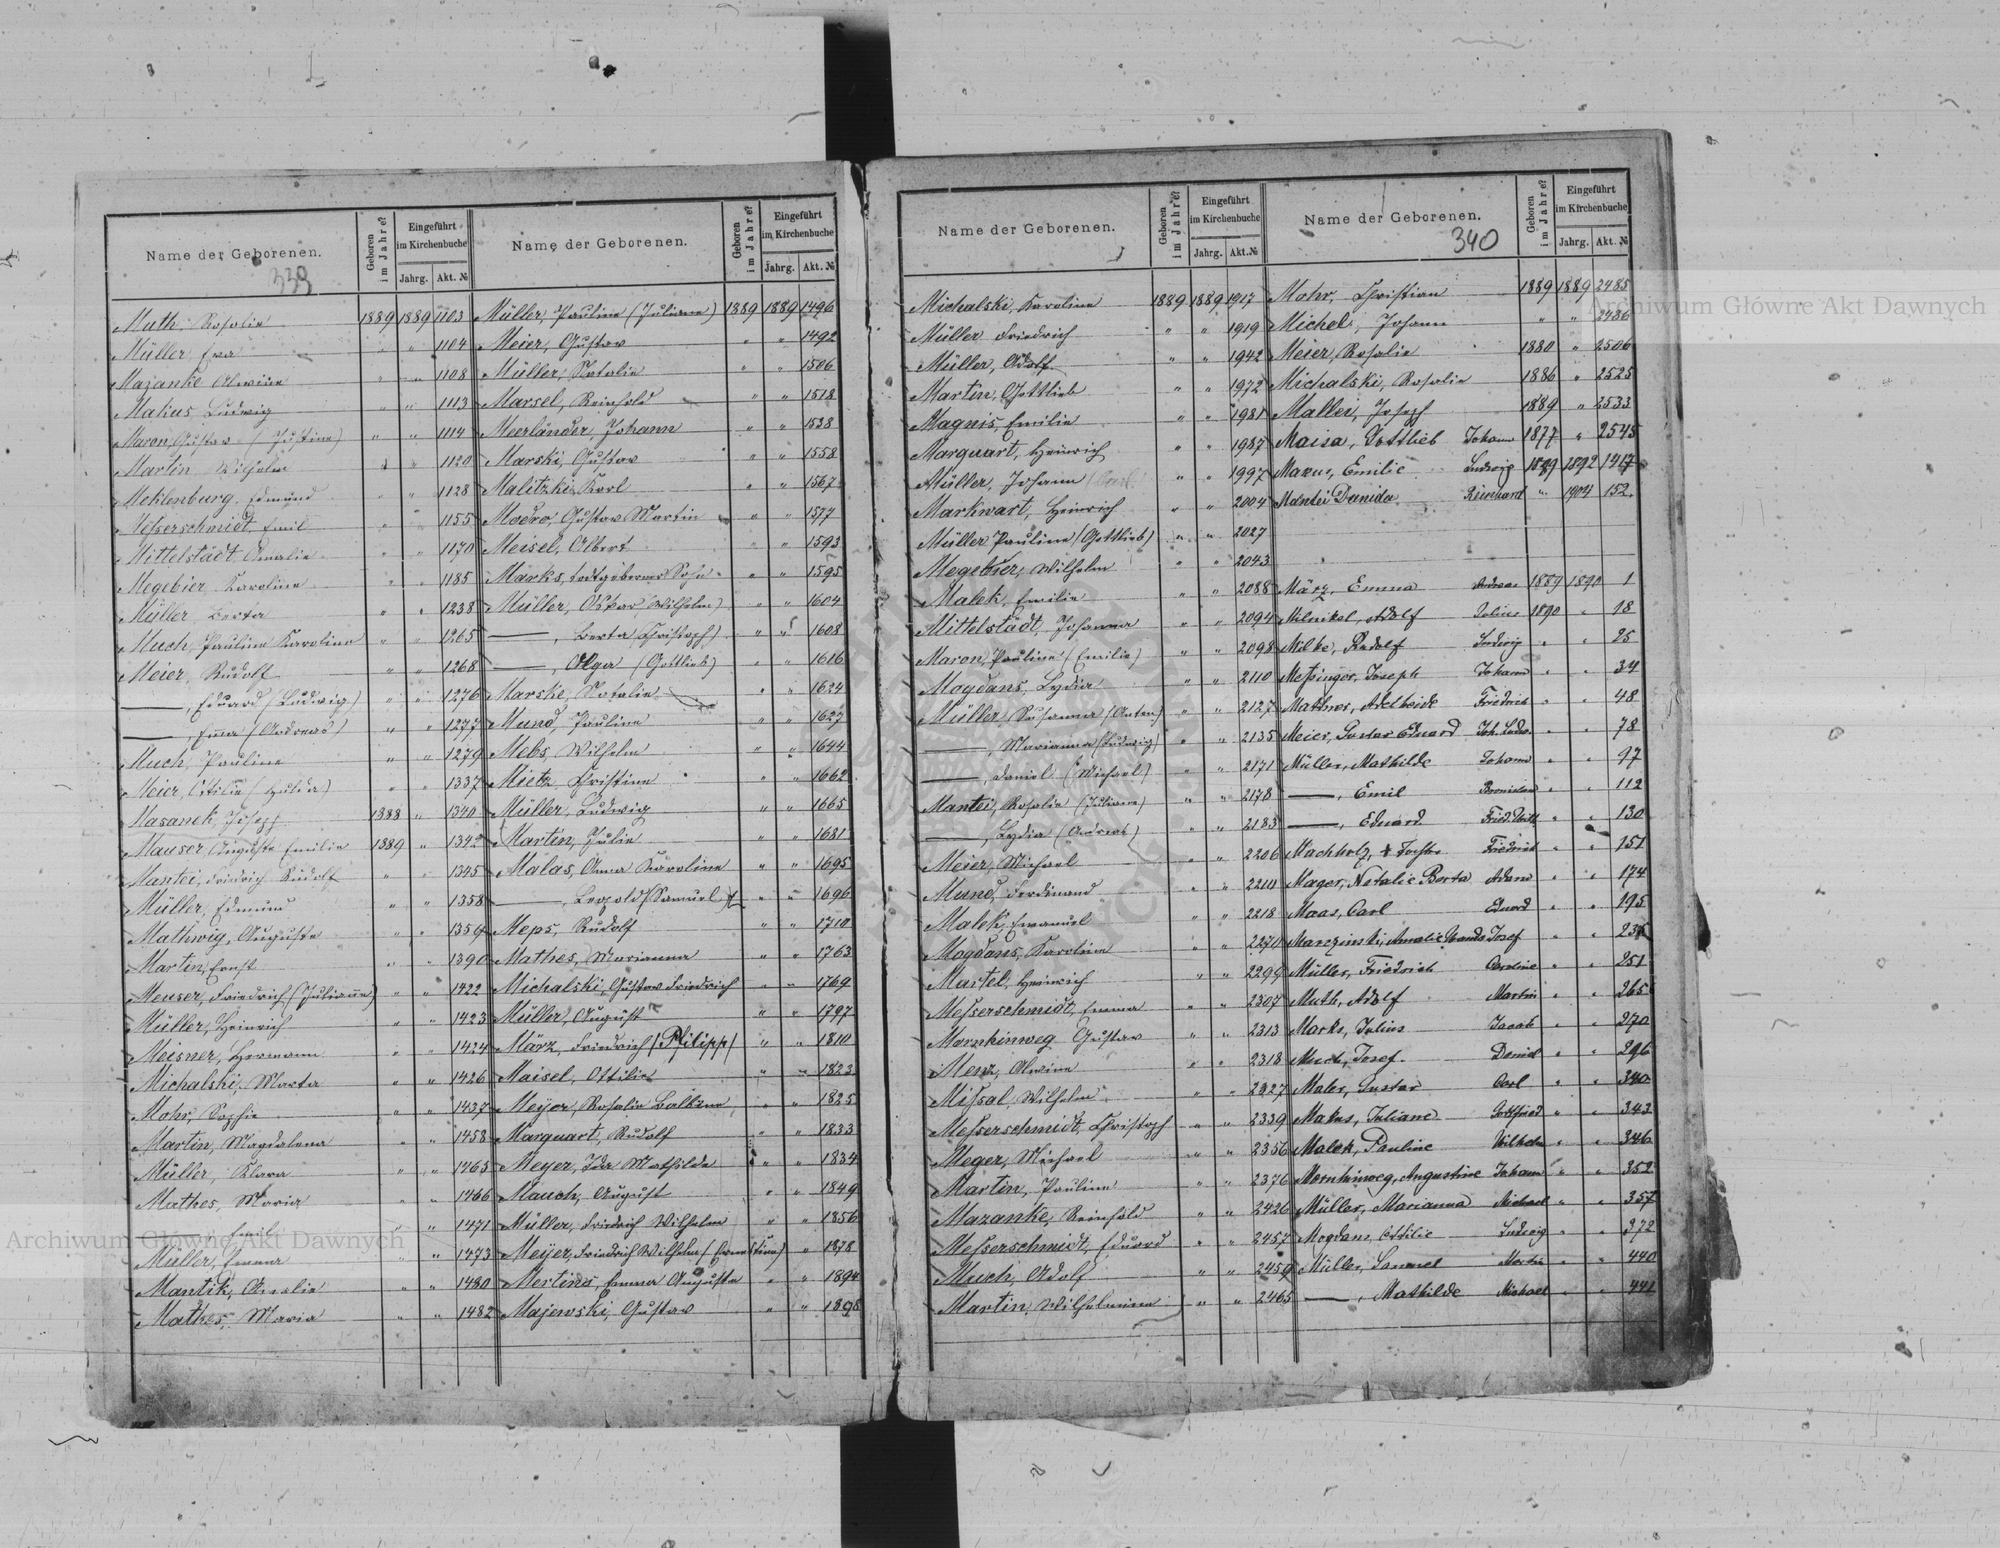 Name der Geborenen.
Geboren im Jahre?
Eingeführt im Kirchenbuche
Jahrg.
Akt. №
339
Muth, Rosalie 1889 1889 1103
Müller, Eva " " 1104
Mazanke Alwine " " 1108
Malius, Ludwig " " 1113
Maron, Gustav (Justine) " " 1114
Martin, Wilhelm " " 1120
Meklenburg, Edmund " " 1128
Meßerschmidt, Emil " " 1155
Mittelstädt Amalie " " 1170
Megebier, Karoline " " 1185
Müller, Berta " " 1238
Much, Pauline Karoline " " 1265
Meier, Rudolf " " 1268
——, Eduard (Ludwig) " " 1276
——, Emma (Andreas) " " 1277
Much, Pauline " " 1279
Meier, Ottilie (Hulda) " " 1337
Masanek, Joseph 1888 " 1340
Mauser, Auguste Emilie 1889 " 1342
Mantei, Friedrich Rudolf " " 1345
Müller, Edmund " " 1358
Mathwig, Auguste " " 1359
Martin, Ernst " " 1390
Meuser, Friedrich (Julianne) " " 1422
Müller, Heinrich " " 1423
Meisner, Hermann " " 1424
Michalski, Marta " " 1426
Mohr, Sophie " " 1437
Martin, Magdalena " " 1458
Müller, Klara " " 1465
Mathes, Maria " " 1466
Emil " " 1471
Müller, Emma " " 1473
Mantik, Amalie " " 1480
Mathes, Maria " " 1482
Name der Geborenen.
Geboren im Jahre?
Eingeführt im Kirchenbuche
Jahrg.
Akt. №
Müller, Pauline (Juliane) 1889 1889 1496
Meier, Gustav " " 1492
Müller, Natalie " " 1506
Marsel, Reinhold " " 1518
Meerländer, Johann " " 1538
Marski, Gustav " " 1558
Malitzki, Karl " " 1567
Modro, Gustav Martin " " 1577
Meisel, Albert " " 1593
Marks, todtgeborner Sohn " " 1595
Müller, Oskar (Wilhelm) " " 1604
——, Berta (Christoph) " " 1608
——, Olga (Gottlieb) " " 1616
Marske, Natalie " " 1624
Mund, Pauline " " 1627
Mebs, Wilhelm " " 1644
Mietz, Christine " " 1662
Müller, Ludwig " " 1665
Martin, Julie " " 1681
Malas, Anna Karoline " " 1695
——, Leopold (Samuel) " " 1696
Meps, Rudolf " " 1710
Mathes, Marianna " " 1763
Michalski, Gustav Friedrich " " 1769
Müller, August " " 1797
März, Friedrich (Philipp) " " 1810
Maisel, Ottilie " " 1823
Meyer, Rosalie Balbine " " 1825
Marquart, Rudolf " " 1833
Meyer, Ida Mathilde " " 1834
Mauch, August " " 1849
Müller, Friedrich Wilhelm " " 1856
Meyer, Friedrich Wilhelm (Ernestine) " " 1878
Mertins, Emma Auguste " " 1894
Majewski, Gustav " " 1898
Name der Geborenen.
Geboren im Jahre?
Eingeführt im Kirchenbuche
Jahrg.
Akt. №
Michalski, Karoline 1889 1889 1917
Müller Friedrich " " 1919
Müller, Adolf " " 1942
Martin, Gottlieb " " 1972
Magnis, Emilie " " 1981
Marquart, Heinrich " " 1987
Müller, Johann " " 1997
Markwart, Heinrich " " 2004
Müller Pauline (Gottlieb) " " 2027
Megebier, Wilhelm " " 2043
Malek, Emilie " " 2088
Mittelstädt, Johanna " " 2094
Maron, Pauline (Emilie) " " 2098
Mogdans, Lydia " " 2110
Müller Susanna (Anton) " " 2127
——, Marianna (Ludwig) " " 2135
——, Daniel (Michael) " " 2171
Mantei, Rosalie (Juliane) " " 2178
——, Lydia (Andreas) " " 2183
Meier, Michael " " 2206
Mund, Ferdinand " " 2211
Malek, Emanuel " " 2218
Mogdans, Karoline " " 2270
Martel, Heinrich " " 2299
Meßerschmidt, Emma " " 2307
Mornhinweg Gustav " " 2313
Menz, Alwine " " 2318
Mißal, Wilhelm " " 2327
Meßerschmidt, Christoph " " 2339
Meger, Michael " " 2356
Martin, Pauline " " 2376
Mazanke, Reinhold " " 2426
Meßerschmidt, Eduard " " 2457
Much, Adolf " " 2459
Martin, Wilhelmine " " 2465
Name der Geborenen.
Geboren im Jahre?
Eingeführt im Kirchenbuche
Jahrg.
Akt. №
340
Mohr, Christian 1889 1889 2485
Michel, Johann " " 2486
Meier, Rosalie 1880 " 2506
Michalski, Rosalie 1886 " 2525
Mallei, Joseph 1889 " 2533
Maisa, Gottlieb Johann 1877 " 2545
Mazur, Emilie Ludwig 1889 1892 1417
Mantei Danida Reinhard " 1904 152
März, Emma Andreas 1889 1890 1
Milnikel, Adolf Julius 1890 " 18
Milke, Rudolf Ludwig " " 25
Meßinger, Joseph Johann " " 34
Mathes, Adelheide Friedrich " " 48
Meier, Gustav Eduard Joh. Ludw. " " 78
Müller, Mathilde Johann " " 97
——, Emil " " 112
——, Eduard Fried. Wilh. " " 130
Machholz, Friedrich " " 151
Mager, Natalie Berta Adam " " 174
Maas, Carl Eduard " " 195
Manzinski, Amalie Wanda Josef " " 235
Müller, Friedrich Caroline " " 251
Muth, Adolf Martin " " 265
Marks, Julius Jacob " " 270
Much, Josef Daniel " " 296
Maler, Gustav Carl " " 340
Makus, Juliane Gottfried " " 343
Malek, Pauline Wilhelm " " 346
Mornhinweg, Augustine Johann " " 352
Müller, Marianna Michael " " 357
Mogdans, Ottilie Ludwig " " 372
Müller, Samuel Martin " " 440
——, Mathilde Michael " " 441
Archiwum Główne Akt Dawnych
Archiwum Główne Akt Dawnych